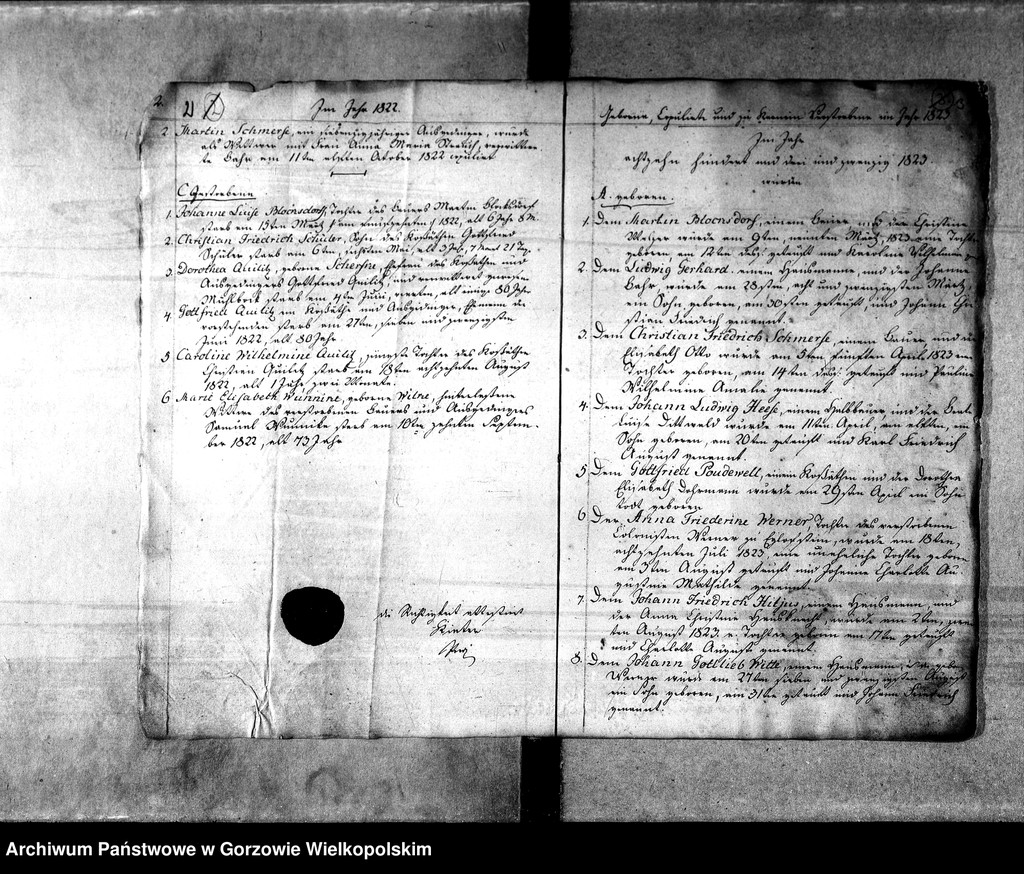 2.
Im Jahr 1822.
2 Martin Schmerse, ein siebenzigjähriger Ausgedinger, wurde
als Wittwer mit Frau Anna Maria verwittwe
te Bahr am 11ten October 1822 copulirt
C Gestorbene
1. Johanne Luise Blocksdorf, Tochter des Bauers Martin Blocksdorf
starb am 15ten März 1822, alt 6 Jahr 8 M.
2. Christian Friedrich Schuler, Sohn des Kossäthen Gottfried
Schuler starb am 6ten, sechsten Mai, alt 3 Jahr, 7 Monat 21 Tage
3. Dorothea Quilitz, geborne Ehefrau des Kossäthen und
Ausgedingers Gottfried Quilitz, und verwittwet gewesene
Muhlbock starb am 4ten Juni, vierten, alt einige 80 Jahr
4. Gottfried Quilitz ein Kossäthe und Ausgedinger, Ehemann der
vorstehenden starb am 27ten, sieben und zwanzigsten
Juni 1822, alt 80 Jahr
5 Caroline Wilhelmine Quilitz, jüngste Tochter des Kossäthen
Christian Quilitz starb am 18ten achtzehnten August
1822, alt 1 Jahr zwei Monate.
6 Marie Elisabeth Wunnike, geborne Wilke, hinterlassene
Wittwe des verstorbenen Bauers und Ausgedingers
Samuel Wunnike starb am 10ten zehnten Septem-
ber 1822, alt 73 Jahr
die Richtigkeit attestirt
Geborne, Copulirte und Verstorbene im Jahr 1823
Im Jahr
achtzehn hundert und drei und zwanzig 1823
wurden
A. geboren.
1. Dem Martin Blocksdorf, einem Bauer und der Christine
Melzer wurde am 9ten, neunten März, 1823 eine Tochter
geboren, am 12ten desgl. getauft und Karoline Wilhelmine
2. Dem Ludwig Gerhard einem Hausmann, und der Johanne
Bahr, wurde am 28sten, acht und zwanzigsten März,
ein Sohn geboren, am 30sten getauft, und Johann Chri
stian Friedrich genannt.
3. Dem Christian Friedrich Schmerse, einem Bauer und der
Elisabeth Otto wurde am 5ten fünften April 1823 eine
Tochter geboren, am 14ten desgl. getauft und Pauline
Wilhelmine Amalie genannt.
4. Dem Johann Ludwig Heese, einem Halbbauer und der
Luise Dittwald wurde am 11ten April, am elften, ein
Sohn geboren, am 20ten getauft und Karl Friedrich
August genannt.
5 Dem Gottfried Poudewell, einem Kossäthen und der Dorothea
Elisabeth Dohrmann wurde am 29sten April ein Sohn
todt geboren
6 Der Anna Friederine Werner, Tochter des verstorbenen
Colonisten Werner zu wurde am 18ten,
achtzehnten Juli 1823, eine uneheliche Tochter geboren
am 3ten August getauft und Johanne Charlotte Au-
gustine Mathilde genannt.
7. Dem Johann Friedrich Hiljus, einem Hausmann, und
der Anna Christine wurde am 2ten, zwei
ten August 1823. e. Tochter geboren am 17ten getauft
und Charlotte Auguste genannt.
8. Dem Johann Gottlieb Witte, einem Hausmann,
Werner wurde am 27ten sieben und zwanzigsten August
ein Sohn geboren, am 31ten getauft und Johann Friedrich
genannt.
Archiwum Państwowe w Gorzowie Wielkopolskim